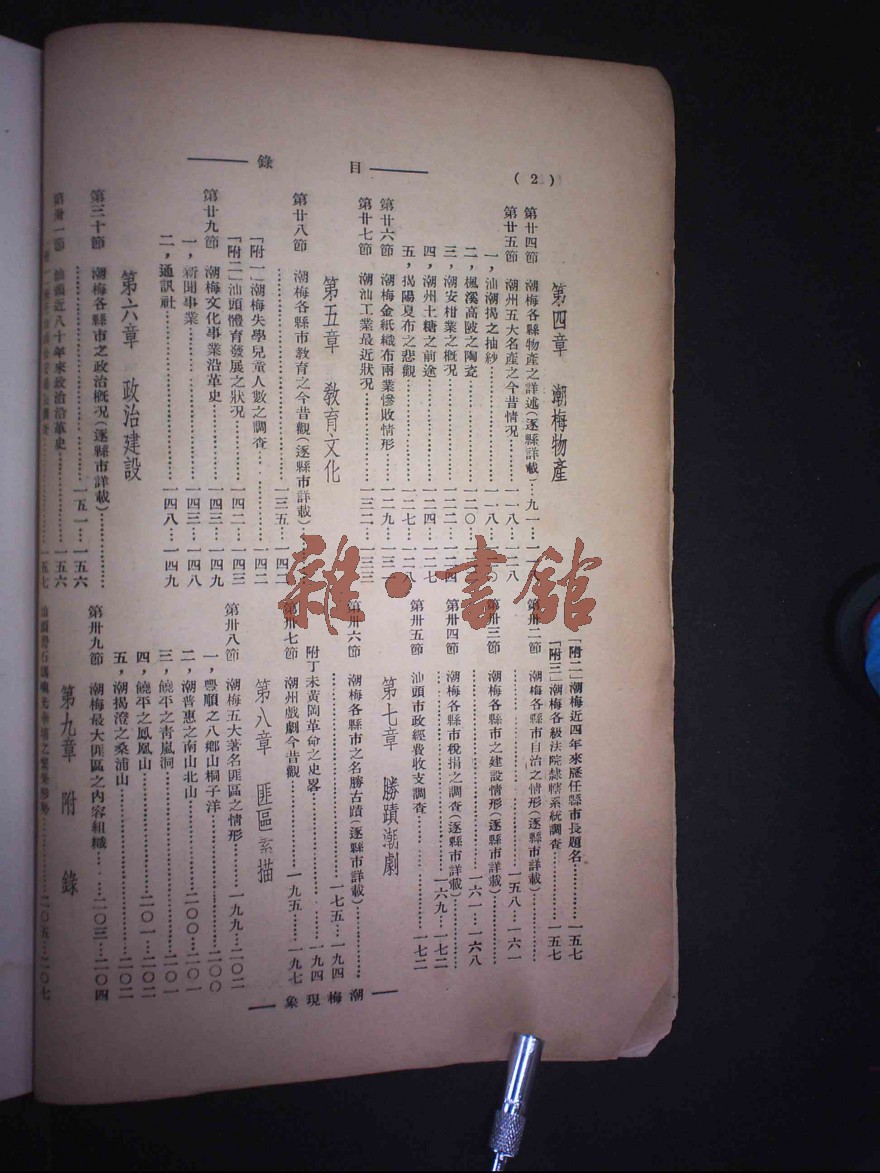 (2)
目錄
第四章 潮梅物產
第廿四節 潮梅各縣物產之詳述(逐縣詳載)…九一…一一八
第廿五節 潮州五大名產之今昔情况……一一八…一二八
一，汕潮揭之抽紗……一一八…一二〇
二，楓溪高陂之陶瓷……一二〇…
三，潮安柑業之概况……一二二…一二四
四，潮州土糖之前途……一二四…一二七
五，揭陽夏布之悲觀……一二七…一二八
第廿六節 潮梅金紙織布兩業慘敗情形…一二九…一三一
第廿七節 潮汕工業最近狀况……一三二…一三三
第五章 教育文化
第廿八節 潮梅各縣市教育之今昔觀(逐縣市詳載)……
……一三五…一四二
「附一」潮梅失學兒童人數之調查……一四二
「附二」汕頭體育發展之狀况……一四二…一四三
第廿九節 潮梅文化事業沿革史……一四三…一四九
一，新聞事業……一四三…一四八
二，通訊社……一四八…一四九
第六章 政治建設
第三十節 潮梅各縣市之政治概况(逐縣市詳載)……
……一五一…一五六
第卅一節 汕頭近八十年來政治沿革史……一五六
……一五七
「附二」潮梅近四年來歷任縣市長題名……一五七
「附三」潮梅各級法院隸轄系統調查……一五七
第卅二節 潮梅各縣市自治之情形(逐縣市詳載)……
……一五八…一六一
第卅三節 潮梅各縣市之建設情形(逐縣市詳載)……
……一六一…一六八
第卅四節 潮梅各縣市稅捐之調查(逐縣市詳載)……
……一六九…一七二
第卅五節 汕頭市政經費收支調查……一七二
第七章 勝蹟潮劇
第卅六節 潮梅各縣市之名勝古蹟(逐縣市詳載)……
……一七五…一九四
附丁未黃岡革命之史畧……一九四
第卅七節 潮州戲劇今昔觀……一九五…一九七
第八章 匪區素描
第卅八節 潮梅五大著名匪區之情形……一九九…二〇二
一，豐順之八鄉山桐子洋……二〇〇
二，潮普惠之南山北山……二〇〇…二〇一
三，饒平之青嵐洞……二〇一
四，饒平之鳳凰山……二〇一…二〇二
五，潮揭澄之桑浦山……二〇二
第卅九節 潮梅最大匪區之內容組織……二〇三…二〇四
第九章 附錄
……二〇五…二〇七
潮梅現象
雜·書館